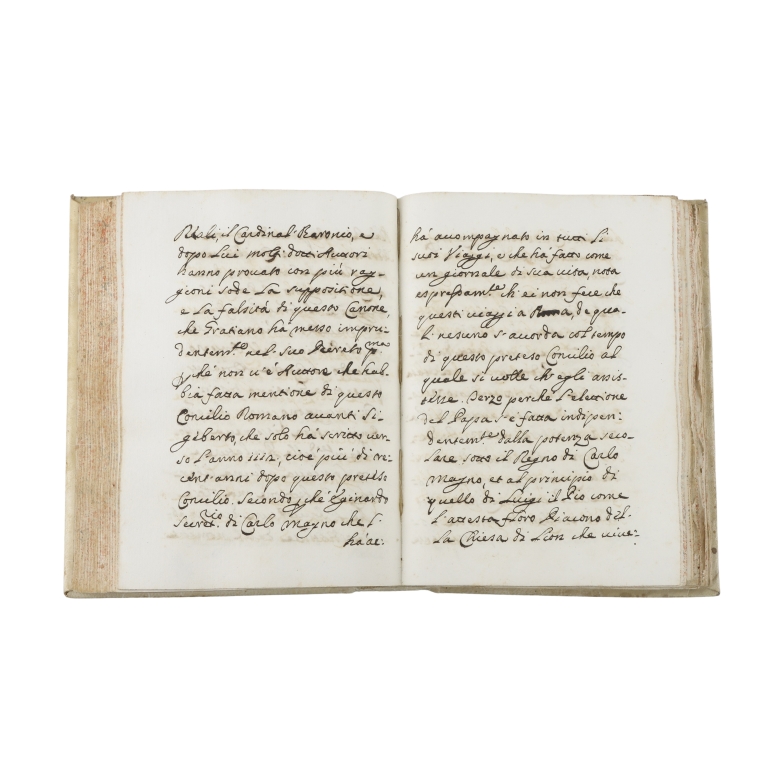 Reali, il Cardinal Baronio, e
dopo Lui molti dotti Auttori
hanno provato con più rag-
gioni sode La suppositione,
e La falsità di questo Canone,
che Gratiano há messo impru-
dentem.te nel suo Decreto p.ma
ché non u'é Auttore che hab-
bia fatta mentione di questo
Concilio Romano auanti Si-
giberto, che solo há scritto uer-
so L'anno 1112, cioé più di tre
cent'anni dopo questo preteso
Concilio. Secondo, ché Eginardo
Secret.rio di Carlo Magno che L'
há ac:
há accompagnato in tutti Li
suoi Viaggi, e che há fatto come
un giornale di sua uita nota
espressam.te ch'ei non fece che
questi uiaggi a Roma, de qua-
li nesuno s'accorda col tempo
di questo preteso Concilio al
quale si uolle ch'egli assis-
tesse. Terzo perché L'elettione
del Papa s'é fatta indipen:
dentem.te dalla potenza seco-
lare sotto il Regno di Carlo
Magno, et al principio di
quello di Luigi il Pio come
L'attesta Floro Diacono del-
La Chiesa di Lion che uiue: